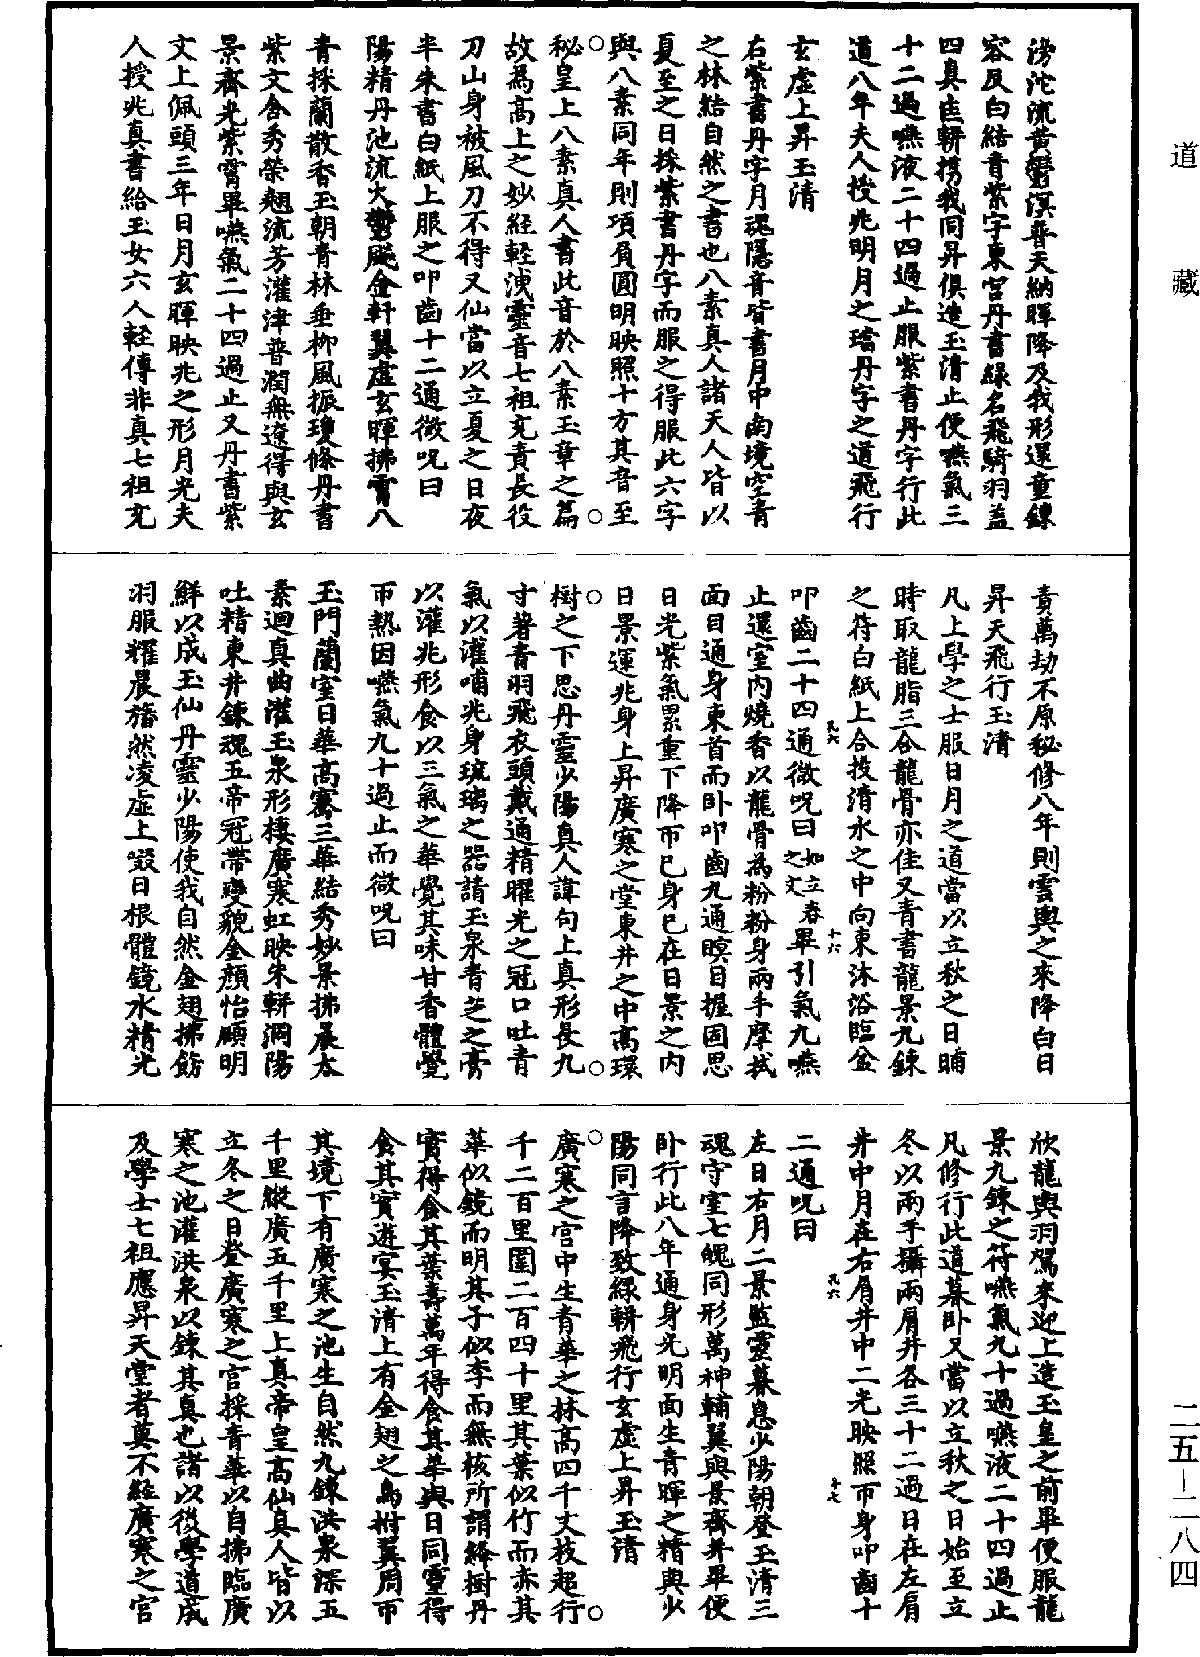 道藏
滂沱流黃鬱溟普天納暉降及我形還童鍊
容反白結青紫字東宮丹書綠名飛騎羽蓋
四真佳軿携我同昇俱造玉清止便嚥氣三
十二過嚥液二十四過止服紫書丹字行此
道八年夫人授兆明月之璫丹字之道飛行
玄虛上昇玉清
右紫書丹字月魂隱音皆書月中南境空青
之林結自然之書也八素真人諸天人皆以
夏至之日採紫書丹字而服之得服此六字
與八素同年則項負圓明映照十方其音至
秘皇上八素真人書此音於八素玉章之篇
故為高上之妙經輕洩靈音七祖充責長役
刀山身被風刀不得又仙當以立夏之日夜
半朱書白紙上服之叩齒十二通微呪曰
陽精丹池流火鬱飈金軒翼虛玄暉拂霄八
青採蘭散香玉朝青林垂柳風振瓊條丹書
紫文含秀榮翹流芳灌津普潤無遼得與玄
景齊光紫霄畢嚥氣二十四過止又丹書紫
文上佩頭三年日月玄暉映兆之形月光夫
人授兆真書給玉女六人輕傳非真七祖充
責萬劫不原秘修八年則雲輿之來降白日
昇天飛行玉清
凡上學之士服日月之道當以立秋之日晡
時取龍脂三合龍骨亦佳又青書龍景九鍊
之符白紙上合投清水之中向東沐浴臨盆
叩齒二十四通微呪曰如立春之文畢引氣九嚥
止還室內燒香以龍骨為粉粉身兩手摩拭
面目通身東首而臥叩齒九通瞑目握固思
日光紫氣累重下降帀已身已在日景之內
日景運兆身上昇廣寒之堂東井之中高環
樹之下思丹靈少陽真人諱句上真形長九
寸著青羽飛衣頭戴通精曜光之冠口吐青
氣以灌哺兆身琉璃之器請玉泉青芝之膏
以灌兆形食以三氣之華覺其味甘香體覺
帀熱因嚥氣九十過止而微呪曰
玉門蘭室日華高騫三華結秀妙景拂晨太
素迴真曲灌玉泉形棲廣寒虹映朱軿洞陽
吐精東井鍊魂五帝冠帶變貌金顏怡顧明
鮮以成玉仙丹靈少陽使我自然金翅拂飾
羽服耀晨旛然凌虛上啜日根體鏡水精光
欣龍輿羽駕來迎上造玉皇之前畢便服龍
景九鍊之符嚥氣九十過嚥液二十四過止
凡修行此道暮臥又當以立秋之日始至立
冬以兩手攝兩肩井各三十二過日在左肩
井中月在右肩井中二光映照帀身叩齒十
二通呪曰
左日右月二景監靈暮息少陽朝登玉清三
魂守室七魄同形萬神輔翼與景齊并畢便
臥行此八年通身光明面生青暉之精與少
陽同言降致綠軿飛行玄虛上昇玉清
廣寒之宮中生青華之林高四千丈枝超行
千二百里圍二百四十里其葉似竹而赤其
華似鏡而明其子似李而無核所謂絳樹丹
實得食其葉壽萬年得食其華與日同靈得
食其實遊宴玉清上有金翅之鳥拊翼周帀
其境下有廣寒之池生自然九鍊洪泉深五
千里縱廣五千里上真帝皇高仙真人皆以
立冬之日登廣寒之宮採青華以自拂臨廣
寒之池灌洪泉以鍊其真也諸以後學道成
及學士七祖應昇天堂者莫不經廣寒之宮
二五－二八四